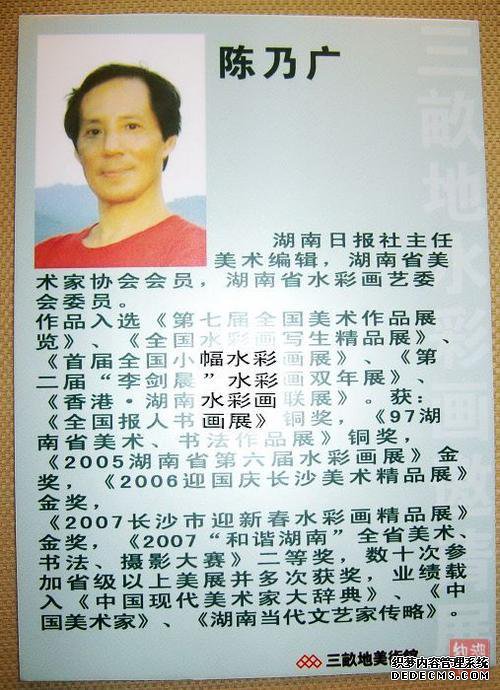 陈乃广
湖南日报社主任
美术编辑，湖南省美
术家协会会员，湖南省水彩画艺委
会委员。
作品入选《第七届全国美术作品展
览》、《全国水彩画写生精品展》、
《首届全国小幅水彩画展》、《第
二届“李剑晨”水彩画双年展》、
《香港·湖南水彩画联展》。获：
《全国报人书画展》铜奖，《97湖
南省美术、书法作品展》铜奖，
《2005湖南省第六届水彩画展》金
奖，《2006迎国庆长沙美术精品展》
金奖，
《2007长沙市迎新春水彩画精品展》
金奖，《2007“和谐湖南”全省美术、
书法、摄影大赛》二等奖，数十次参
加省级以上美展并多次获奖，业绩载
入《中国现代美术家大辞典》、《中
国美术家》、《湖南当代文艺家传略》。
三畝地水彩画邀请展
三畝地美術館
织梦内容管理系统
DEDECMS.COM